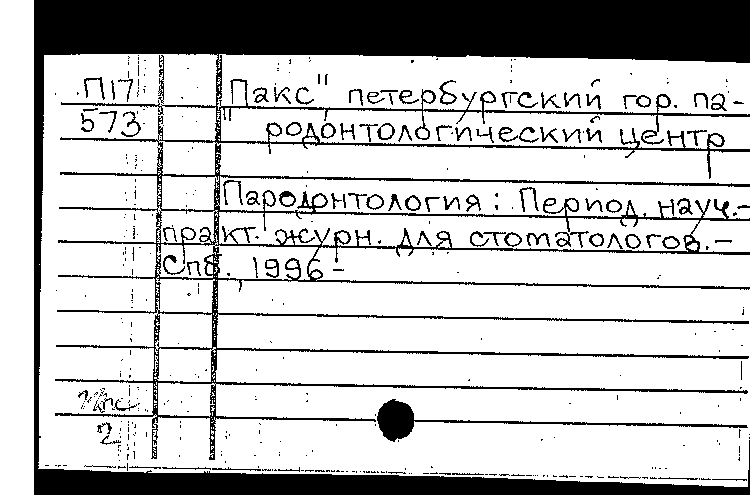 П17 "Пакс" петербургский гор. па-
573 родонтологический центр
Пародонтология : Период. науч.-
практ. журн. для стоматологов. -
Спб., 1996 -
2